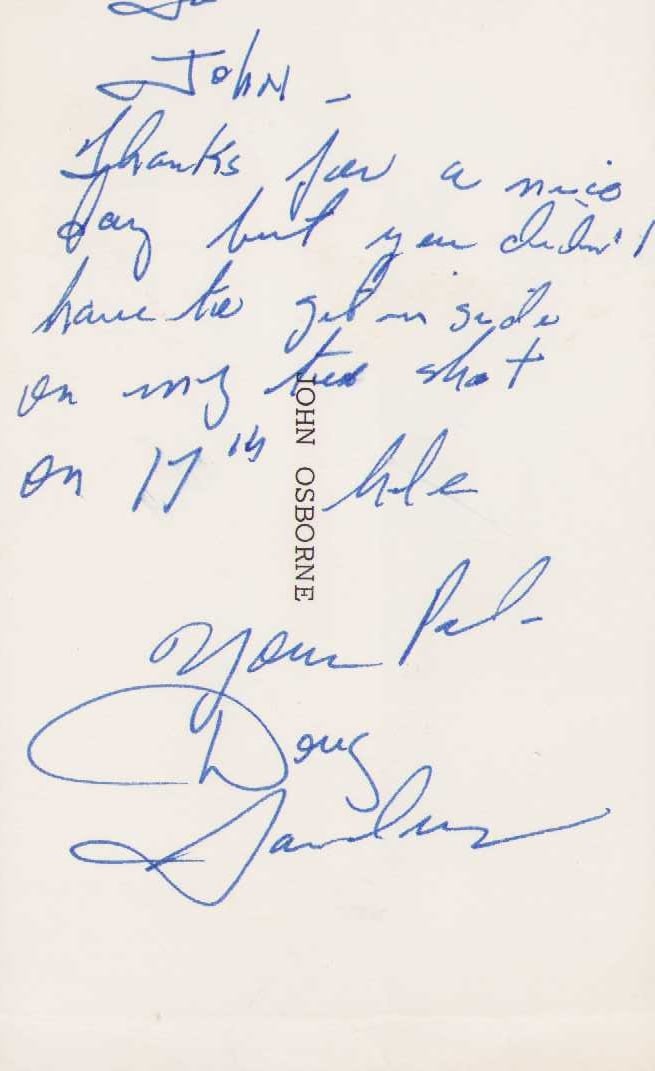 John -
Thanks for a nice
day but you didn't
have to get inside
on my tee shot
on 17th hole
JOHN OSBORNE
Your Pal -
Doug
Sanders